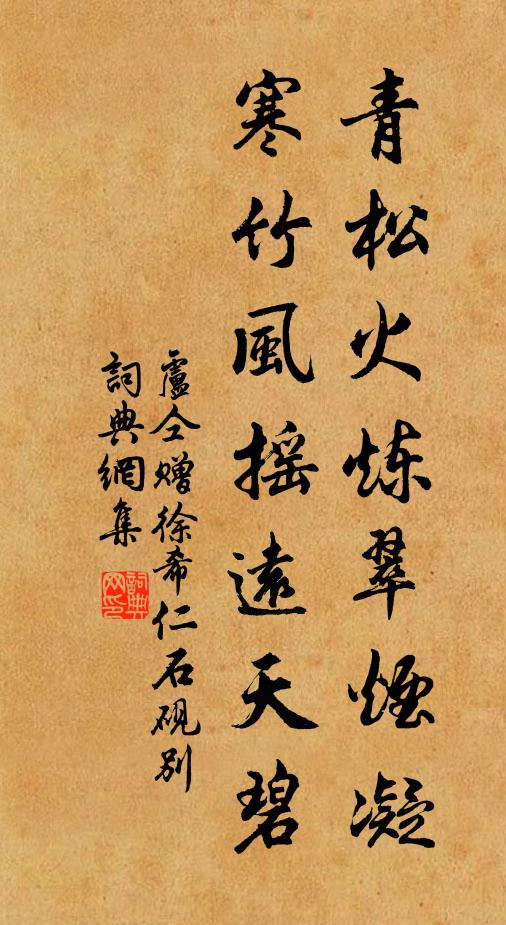 青松火炼翠煙凝
寒竹風摇遠天碧
盧仝赠徐希仁石硯别
詞典網集
詞典网印